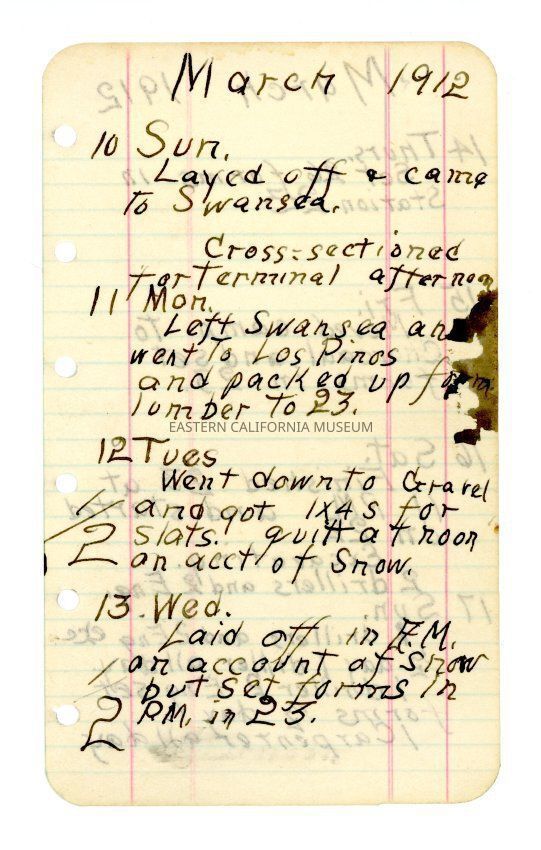 March 1912
10 Sun.
Layed off & came
to Swansea.
Cross-sectioned
for Terminal afternoon
11 Mon.
Left Swansea an
went To Los Pinos
and packed up form
lumber to 23.
EASTERN CALIFORNIA MUSEUM
12 Tues
Went down to Gravel
1/2 and got 1x4s for
slats. quitt at noon
on acct of Snow.
13 Wed.
Laid off in A.M.
1/2 on account of Snow
but set forms in
P.M. in 23.